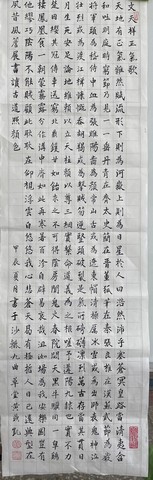 文天祥正氣歌
天地有正氣雜然賦流形下則為河嶽上則為日星於人曰浩然沛乎塞蒼冥皇路當清夷含
和吐明庭時窮節乃見一一垂丹青在齊太史簡在晉董狐筆在秦張良椎在漢蘇武節為嚴
將軍頭為嵇侍中血為張睢陽齒為顏常山舌或為遼東帽清操厲冰雪或為出師表鬼神泣
壯烈或為渡江楫慷慨吞胡羯或為擊賊笏逆豎頭破裂是氣所磅礴凜烈萬古存當其貫日
月生死安足論地維賴以立天柱賴以尊三綱實繫命道義為之根嗟予遘陽九隸也實不力
楚囚纓其冠傳車送窮北鼎鑊甘如飴求之不可得陰房闃鬼火春院閟天黑牛驥同一皂雞
棲鳳凰食一朝蒙霧露分作溝中瘠如此再寒暑百沴自辟易嗟哉沮洳場為我安樂國豈有
他繆巧陰陽不能賊顧此耿耿在仰視浮雲白悠悠我心悲蒼天曷有極哲人日已遠典型在
夙昔風簷展書讀古道照顏色 甲辰夏月書于沙縣九曲草堂黃